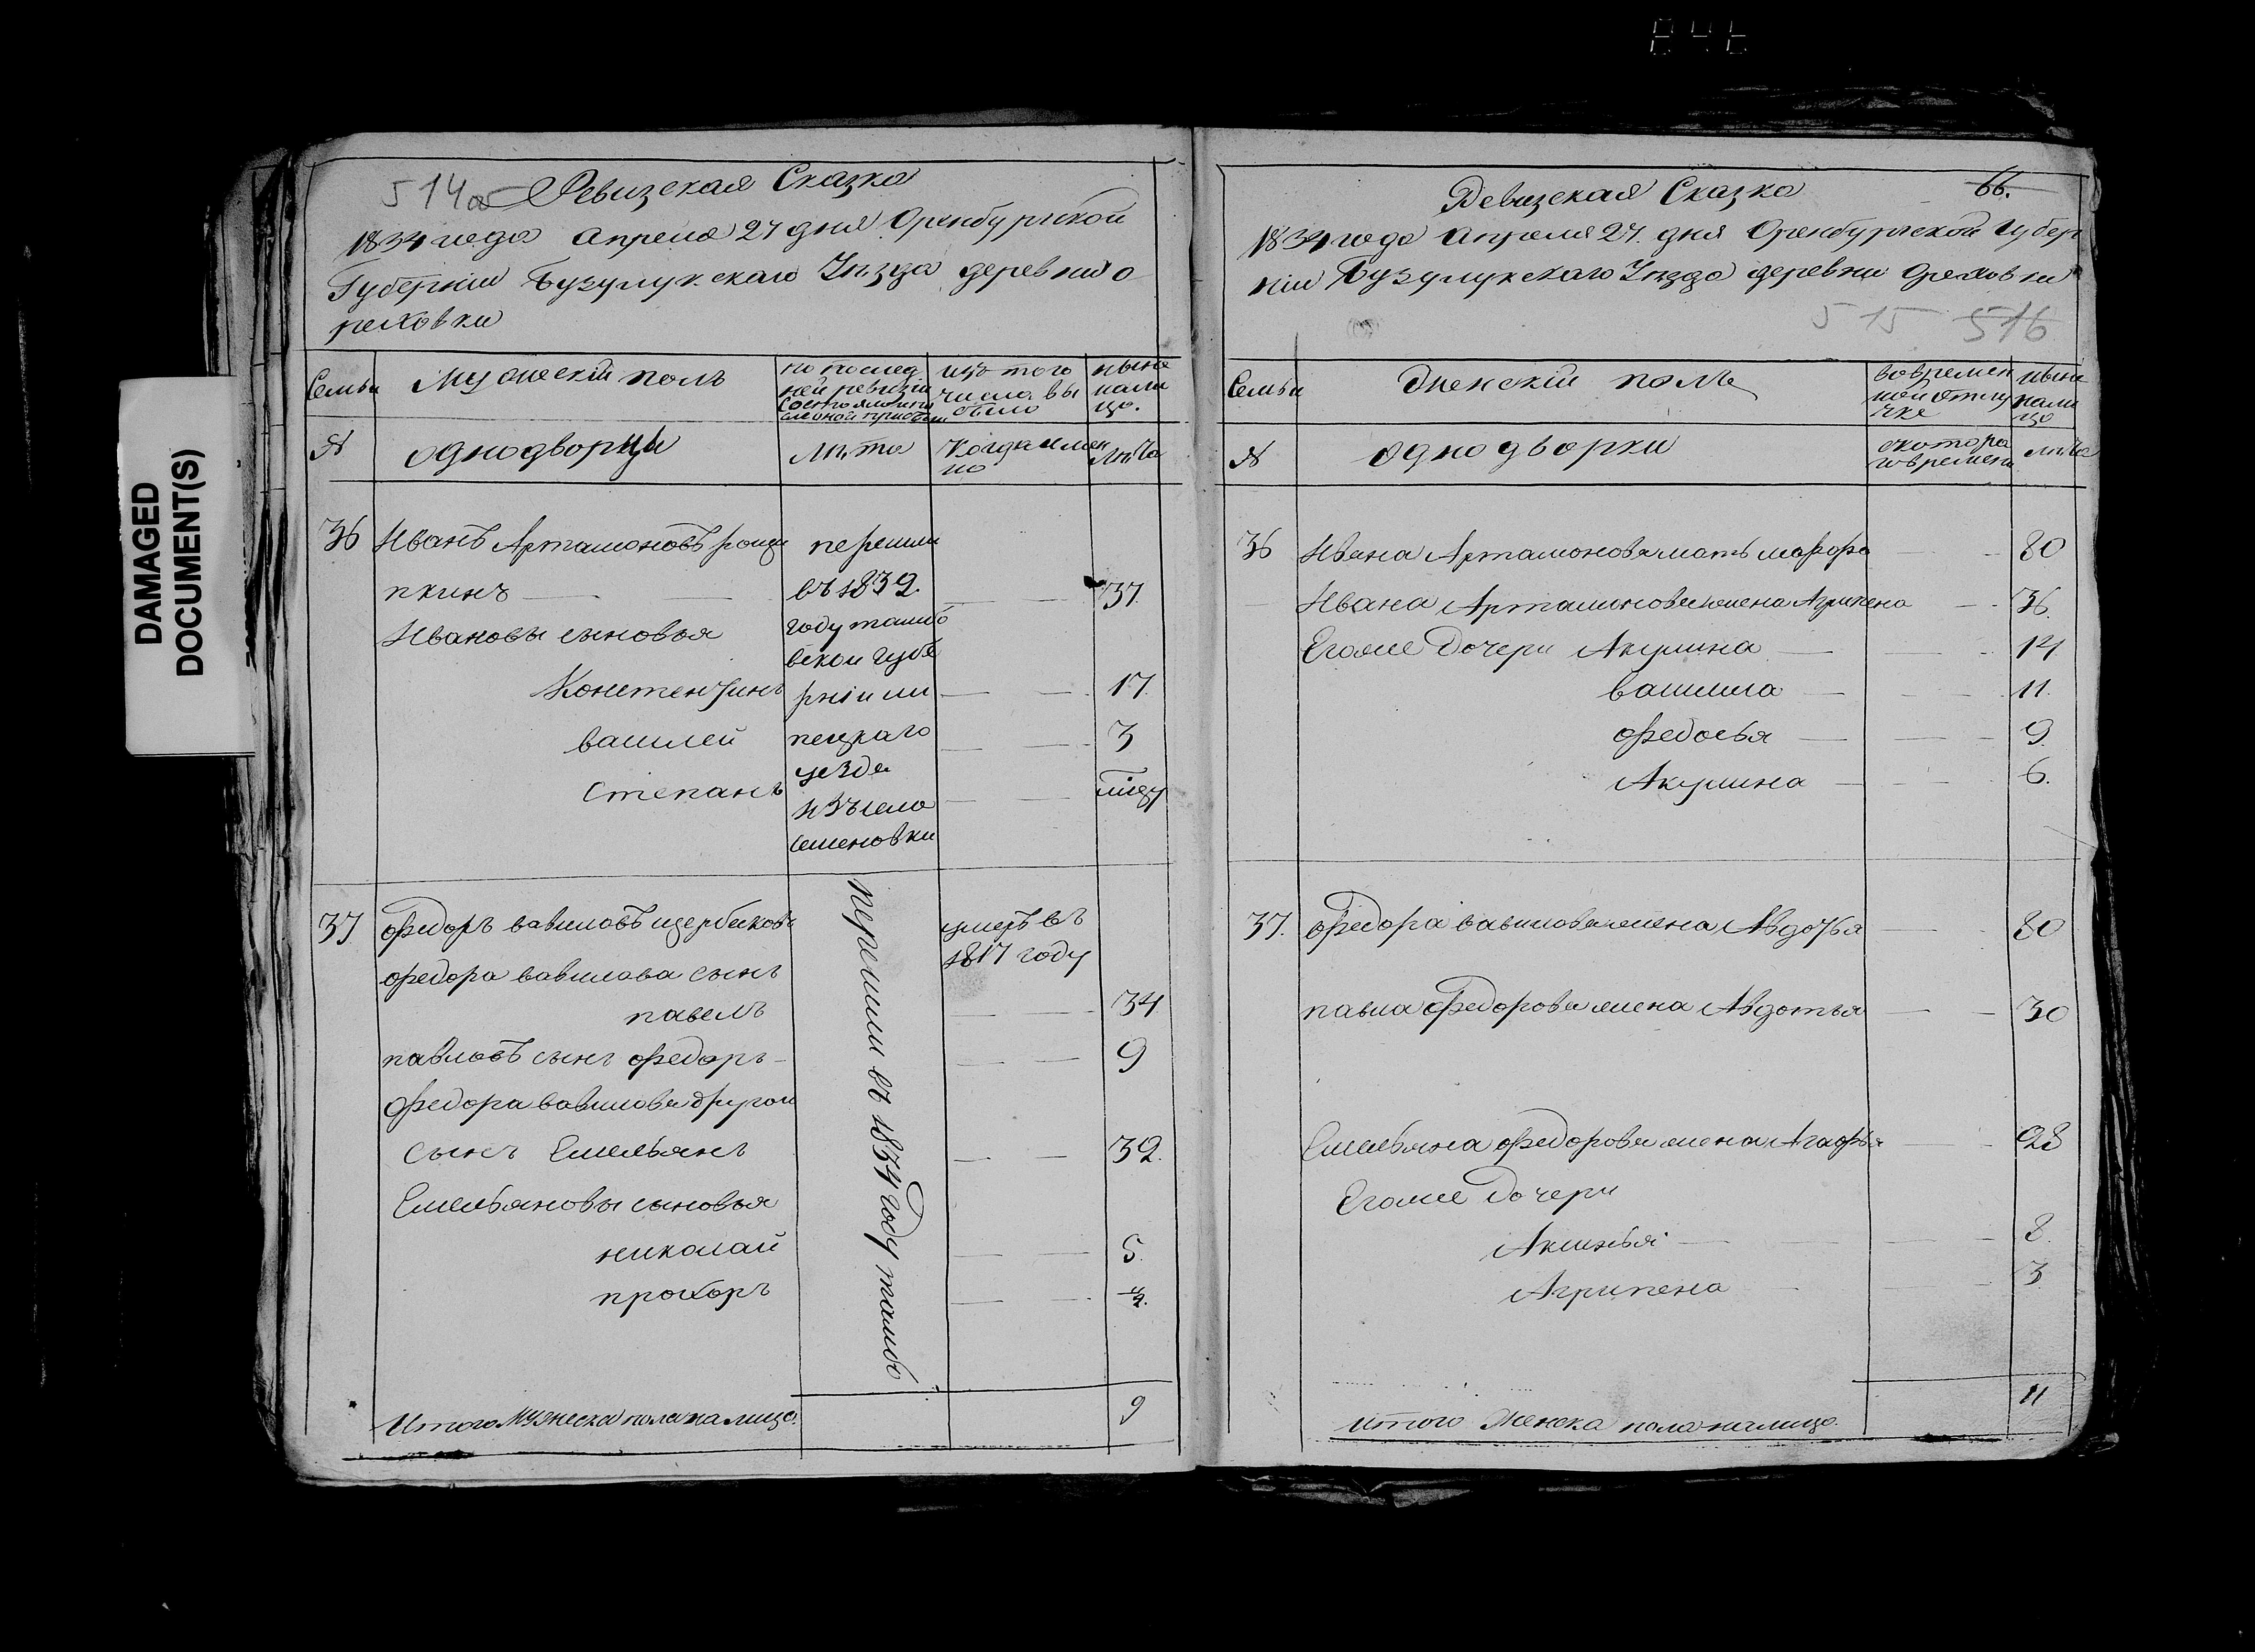 DAMAGED
DOCUMENT(S)
514а
Ревизская Сказка
1834 года Апреля 27 дня Оренбургской
Губернии Бузулукскаго Уезда деревни О
реховки
Семьи
Мужеский полъ
по послед
ней ревизии
состояло и по
из того
числа вы
было
ныне
нали
цо.
№
однодворцы
лета
Когда имен
но
лета
36
Иванъ Артамоновъ рощу
пкинъ
перешли
въ 1832
37
Ивановы сыновья
году тамбо
вской губе
Констентинъ
рнии ли
17
василей
пецкаго
3
уезда
Степанъ
изъ села
семеновки
37
Федоръ вавиловъ щербаковъ
умеръ въ
1817 году
федора вавилова сынъ
павелъ
34
павловъ сынъ федоръ
9
Федора вавилова другой
сынъ Емельянъ
32.
Емельяновы сыновья
николай
5.
прохоръ
перешли въ 1834 году тамбо
Итого Мужеска пола на лицо.
9
Ревизская Сказка
66.
1834 года Апреля 27. дня Оренбургской Губер
нии Бузулукскаго Уезда деревни Ореховки
515 516
Семьи
Женский полъ
во времен
ной отлу
чке
ныне
нали
цо
№
однодворки
с котора
го времени
лета
36
Ивана Артамонова мать марфа
80
Ивана Артамонова жена Агрипена
36.
Егоже Дочери Акулина
14
василиса
11.
федосья
9.
Акулина
6.
37.
Федора вавилова жена Авдотья
80
павла Федорова жена Авдотья
30
Емельяна федорова жена Агафья
28
Егоже Дочери
Аксинья
8.
Агрипена
3
итого Женска пола налицо.
11